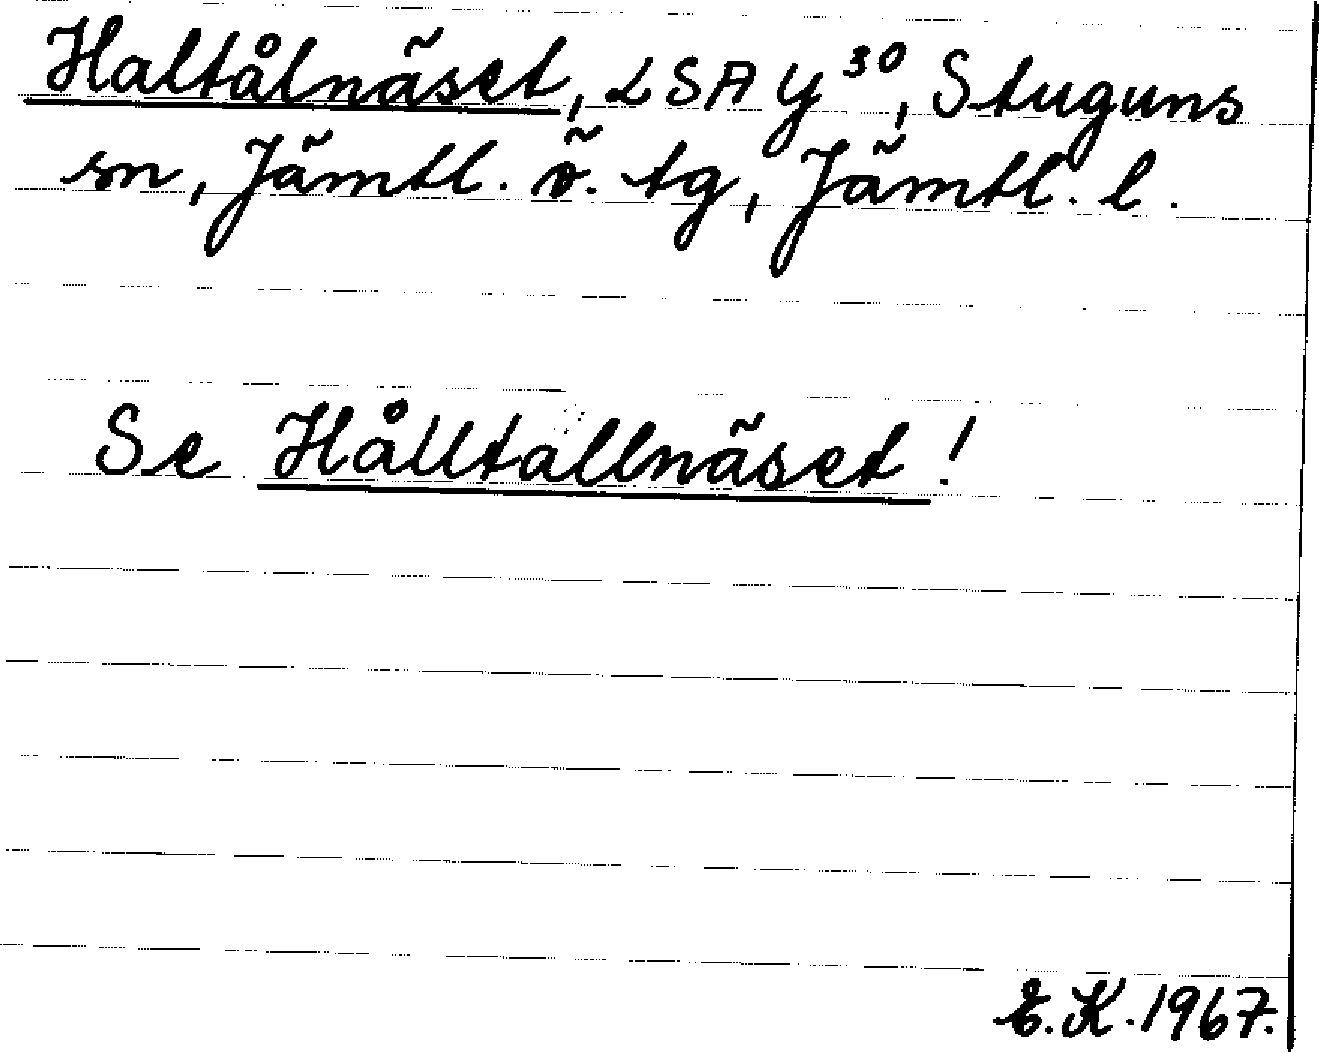 Haltålnäset, LSA Y³⁰, Stuguns
sn, Jämtl. ö. tg, Jämtl. l.
Se Hålltallnäset!
E.K. 1967.